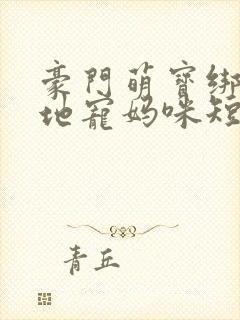 豪門萌寶綁
地寵媽咪短
青丘